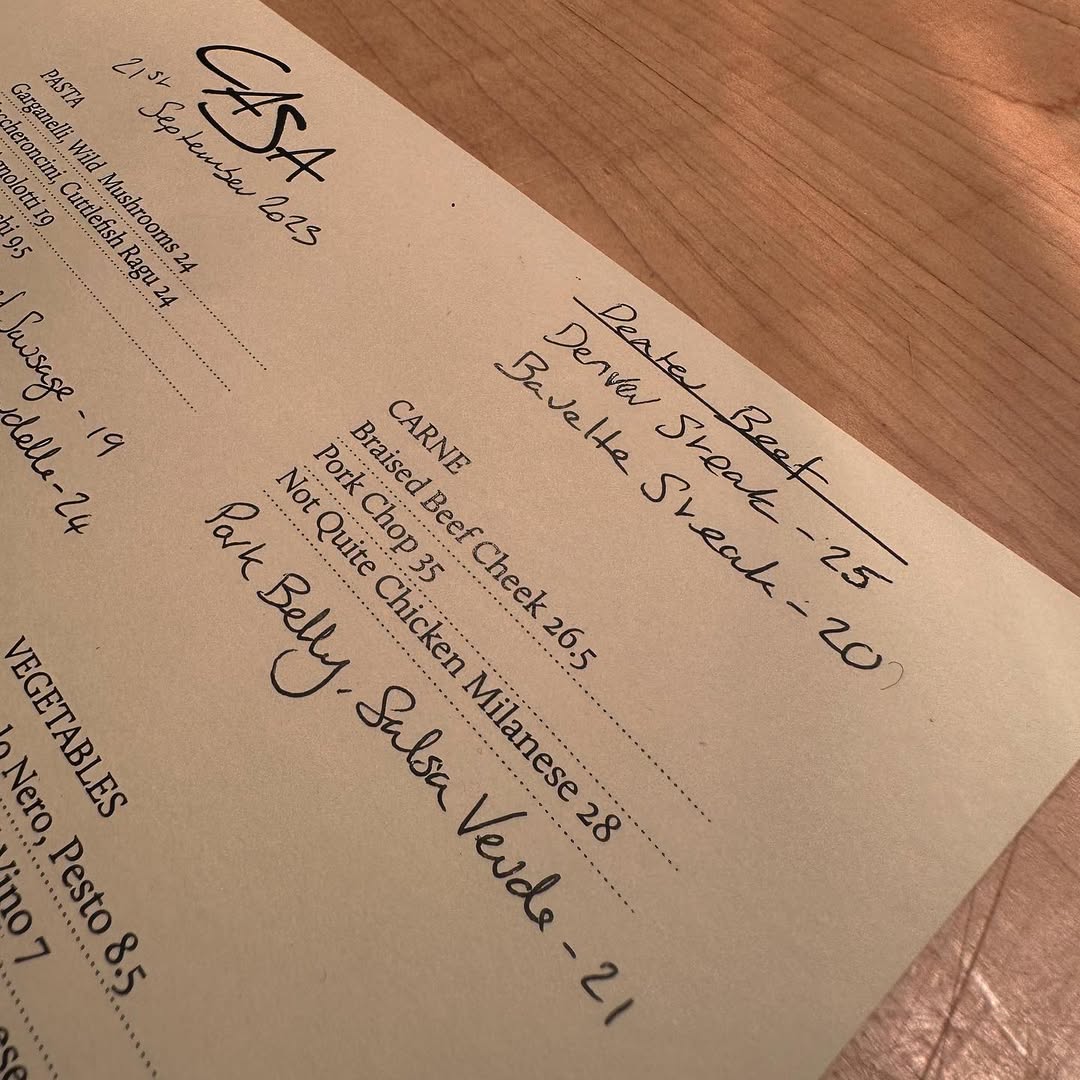 CASA
21st September 2023
PASTA
Garganelli, Wild Mushrooms 24
Cuttlefish Ragu 24
19
9.5
Sausage - 19
24
Beef
Denver Steak - 25
Bavette Steak - 20
CARNE
Braised Beef Cheek 26.5
Pork Chop 35
Not Quite Chicken Milanese 28
Pork Belly, Salsa Verde - 21
VEGETABLES
Nero, Pesto 8.5
Vino 7